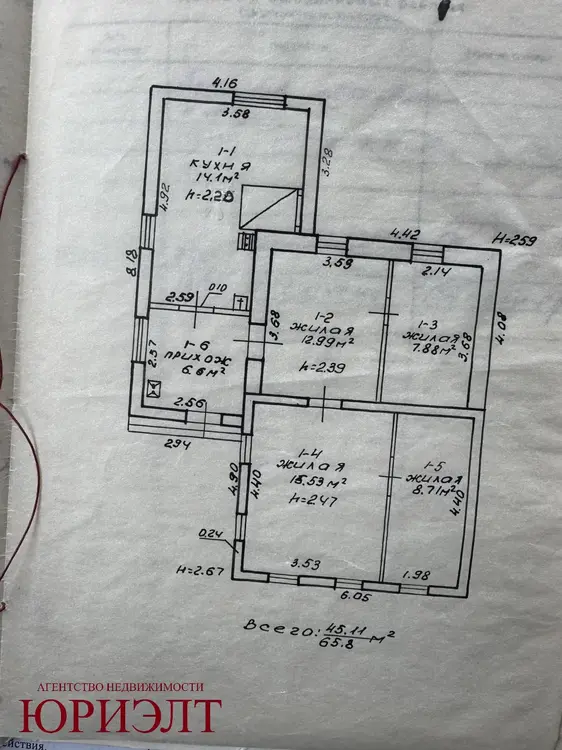 4.16
3.58
1-1
КУХНЯ
14.1м²
h=2,20
4.92
3.28
8.18
4.42
H=259
3.59
2.14
2.59
0.10
1-2
ЖИЛАЯ
12.99м²
3.68
1-3
ЖИЛАЯ
7.88м²
3.68
4.08
1-6
ПРИХОЖ
6.6м²
2.57
h=2.39
2.56
294
1-4
ЖИЛАЯ
15.53м²
h=2.47
1-5
ЖИЛАЯ
8.71м²
4.90
4.40
4.40
0.24
H=2.67
3.53
1.98
6.05
Всего: 45.11 м²
65.8
АГЕНТСТВО НЕДВИЖИМОСТИ
ЮРИЭЛТ